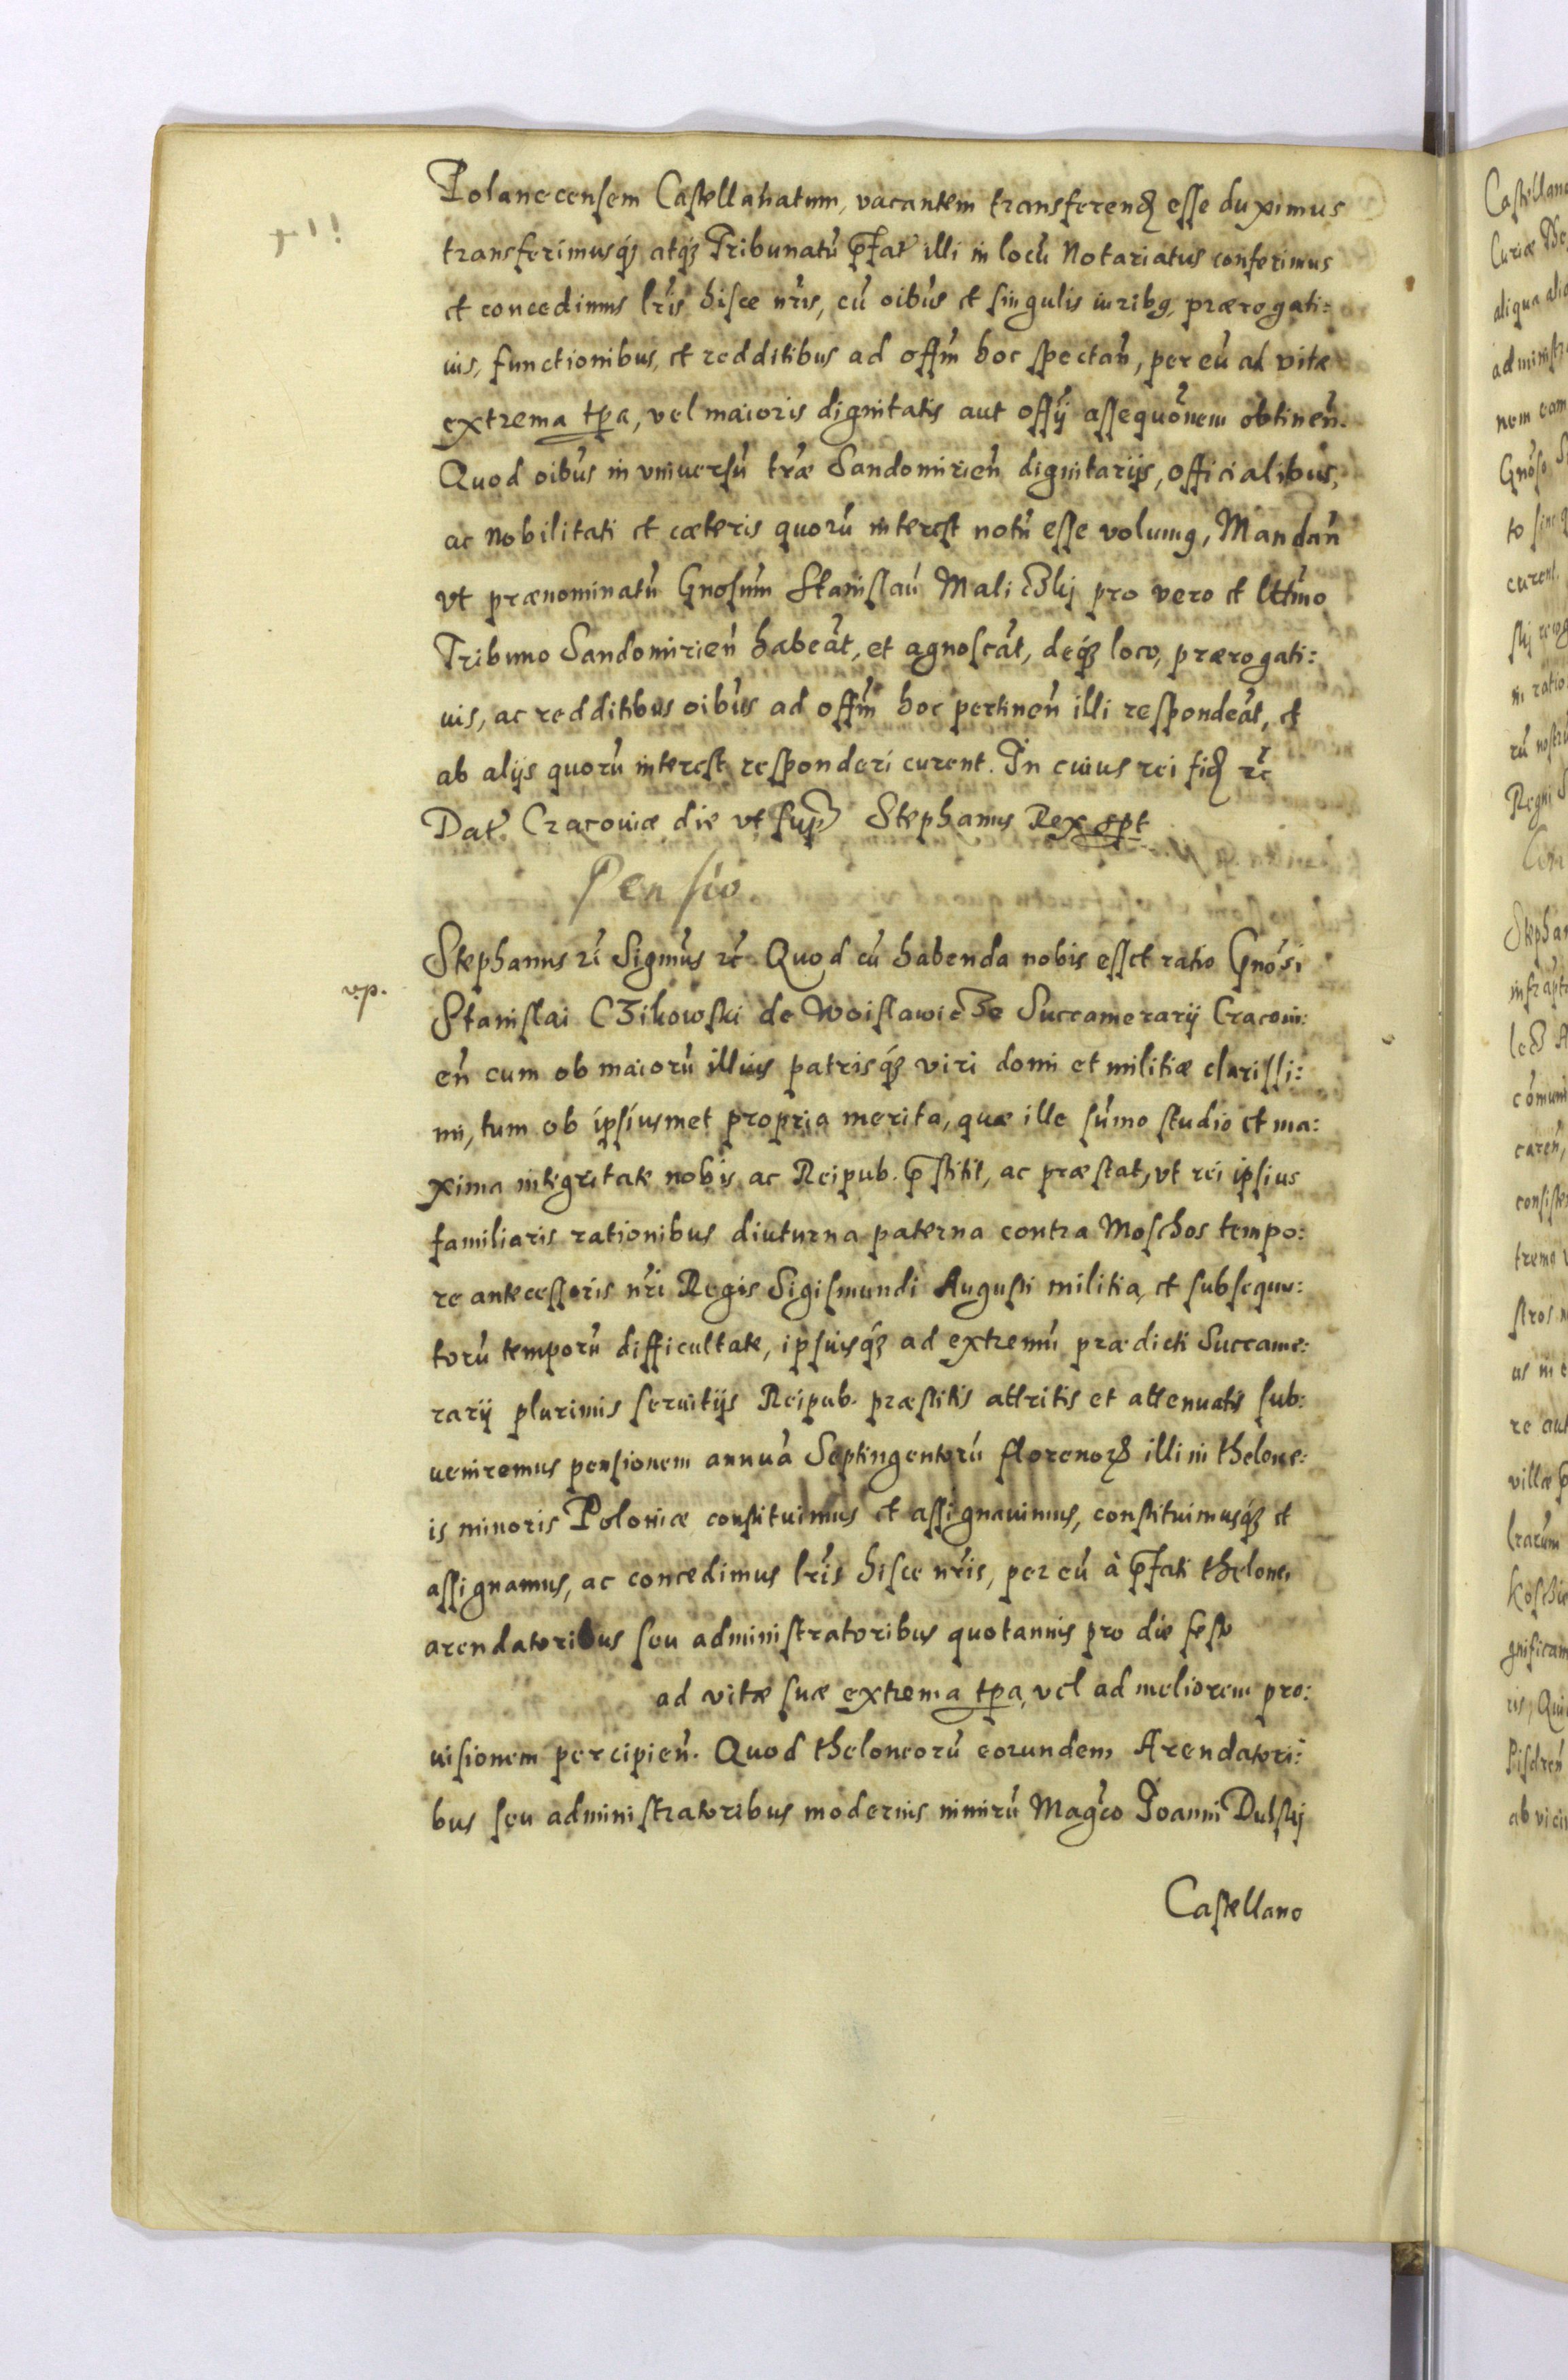 Polanecensem Castellanatum, vacantem transferend esse duximus
transferimusq́3 atq́3 Tribunatũ p̄fat illi in locũ Notariatus conferimus
et concedimus lr̃is hisce nr̃is, cũ oib́us et singulis iuribq, prærogati:
uis, functionibus, et redditibus ad offm̃ hoc spectañ, per eũ ad vitæ
extrema tp̃a, vel maioris dignitatis aut offij assequõnem obtineñ.
Quod oibũs in vniuersũ trǽ Sandomirieñ dignitarijs, officialibus,
ac Nobilitati et cæteris quorũ interest notũ esse volumq, Mandañ
vt prænominatũ Gnosũm Stanislaũ Maliczkij pro vero et lttĩmo
Tribuno Sandomirieñ habeãt, et agnoscãt, deq́3 loco, prærogati:
uis, ac redditibus oibũs ad offm̃ hoc pertineñ illi respondeãt, et
ab alijs quorũ interest responderi curent. In cuius rei fid rc̃
Dat. Cracouiæ die vt supra Stephanus Rex spt
Pensio
Stephanus rc̃ Sigmũs rc̃ Quod cũ habenda nobis esset ratio Gnõsi
Stanislai Czikowski de Woislawicze Succamerarij Cracoui:
eñ cum ob maiorũ illius patrisq́3 viri domi et militiæ clarissi:
mi, tum ob ipsiusmet propria merita, quæ ille sũmo studio et ma:
xima integritate nobis ac Reipub. p̄stitit, ac præstat, vt rei ipsius
familiaris rationibus diuturna paterna contra Moschos tempo:
re antecessoris nr̃i Regis Sigismundi Augusti militia, et subsequu:
torũ temporũ difficultate, ipsiusq́3 ad extremũ prædicti Succame:
rarij plurimis seruitijs Reipub. præstitis attritis et attenuatis sub:
ueniremus pensionem annuã Septingentorũ florenor illi in thelone:
is minoris Poloniæ constituimus et assignauimus, constituimusq́3 et
assignamus, ac concedimus lr̃is hisce nr̃is, per eũ à p̄fati thelonei
arendatoribus seu administratoribus quotannis pro die festo
ad vitæ suæ extrema tp̃a, vel ad meliorem pro:
uisionem percipieñ. Quod theloneorũ eorundem Arendatori:
bus seu administratoribus modernis nimirũ Magc̃o Joanni Dulskij
Castellano